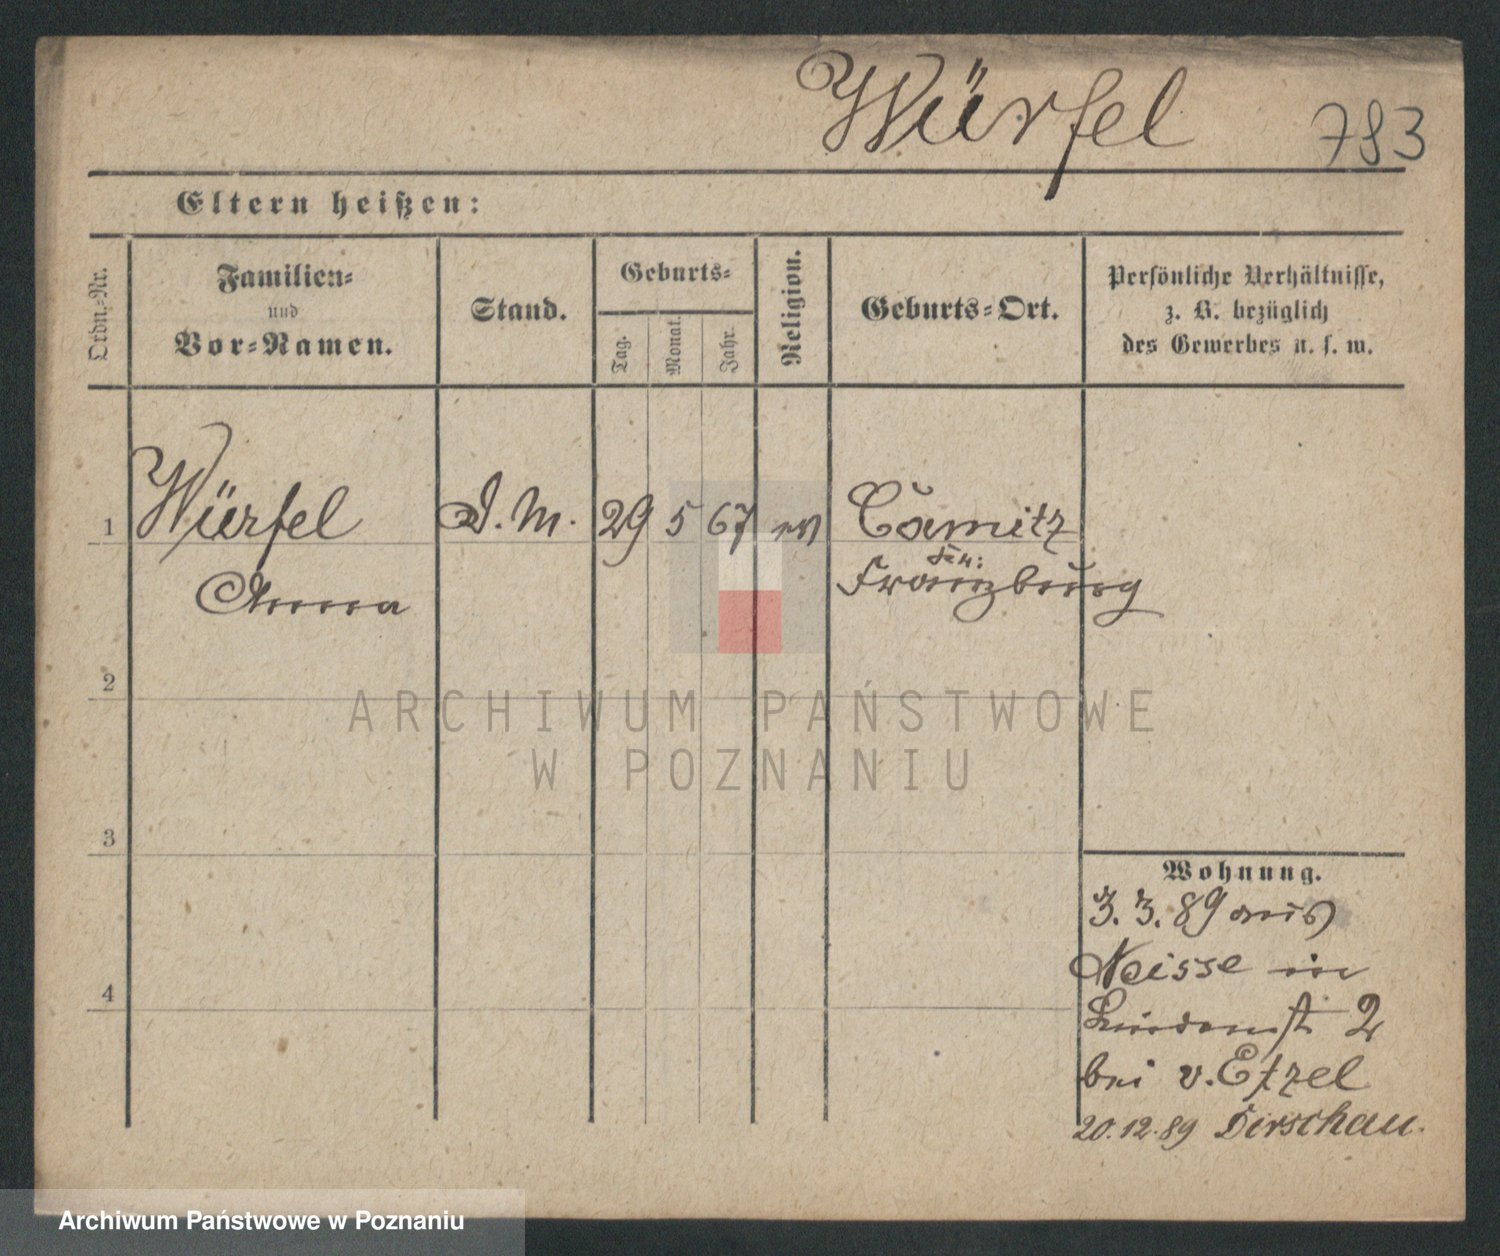 Würfel 783
Eltern heißen:
Ordn.-Nr.
Familien-
und
Vor-Namen.
Stand.
Geburts-
Tag.
Monat.
Jahr.
Religion.
Geburts-Ort.
Persönliche Verhältnisse,
z. B. bezüglich
des Gewerbes u. s. w.
1 Würfel D. M. 29 5 67 ev Camitz
Anna Franzburg
2
3
4
ARCHIWUM PAŃSTWOWE
W POZNANIU
Wohnung.
3. 3. 89 aus
Neisse in
Lindenst 2
bei v. Etzel
20.12.89 Dirschau.
Archiwum Państwowe w Poznaniu